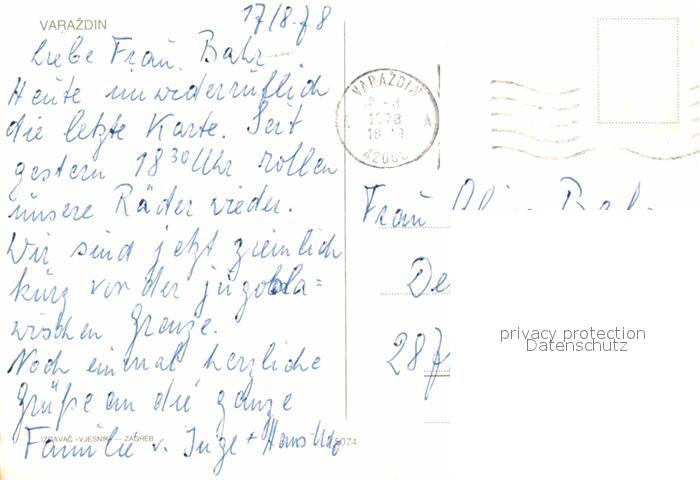 VARAŽDIN
17/8.78
Liebe Frau Bahr
Heute unwiderruflich
die letzte Karte. Seit
gestern 18 30 Uhr rollen
unsere Räder wieder.
Wir sind jetzt ziemlich
kurz vor der jugosla=
wischen Grenze.
Noch einmal herzliche
Grüße an die ganze
Familie v. Inge + Hans Udo
IZDAVAČ »VJESNIK« — ZAGREB
5074
VARAŽDIN
1978
A
42000
Frau
De
287
privacy protection
Datenschutz